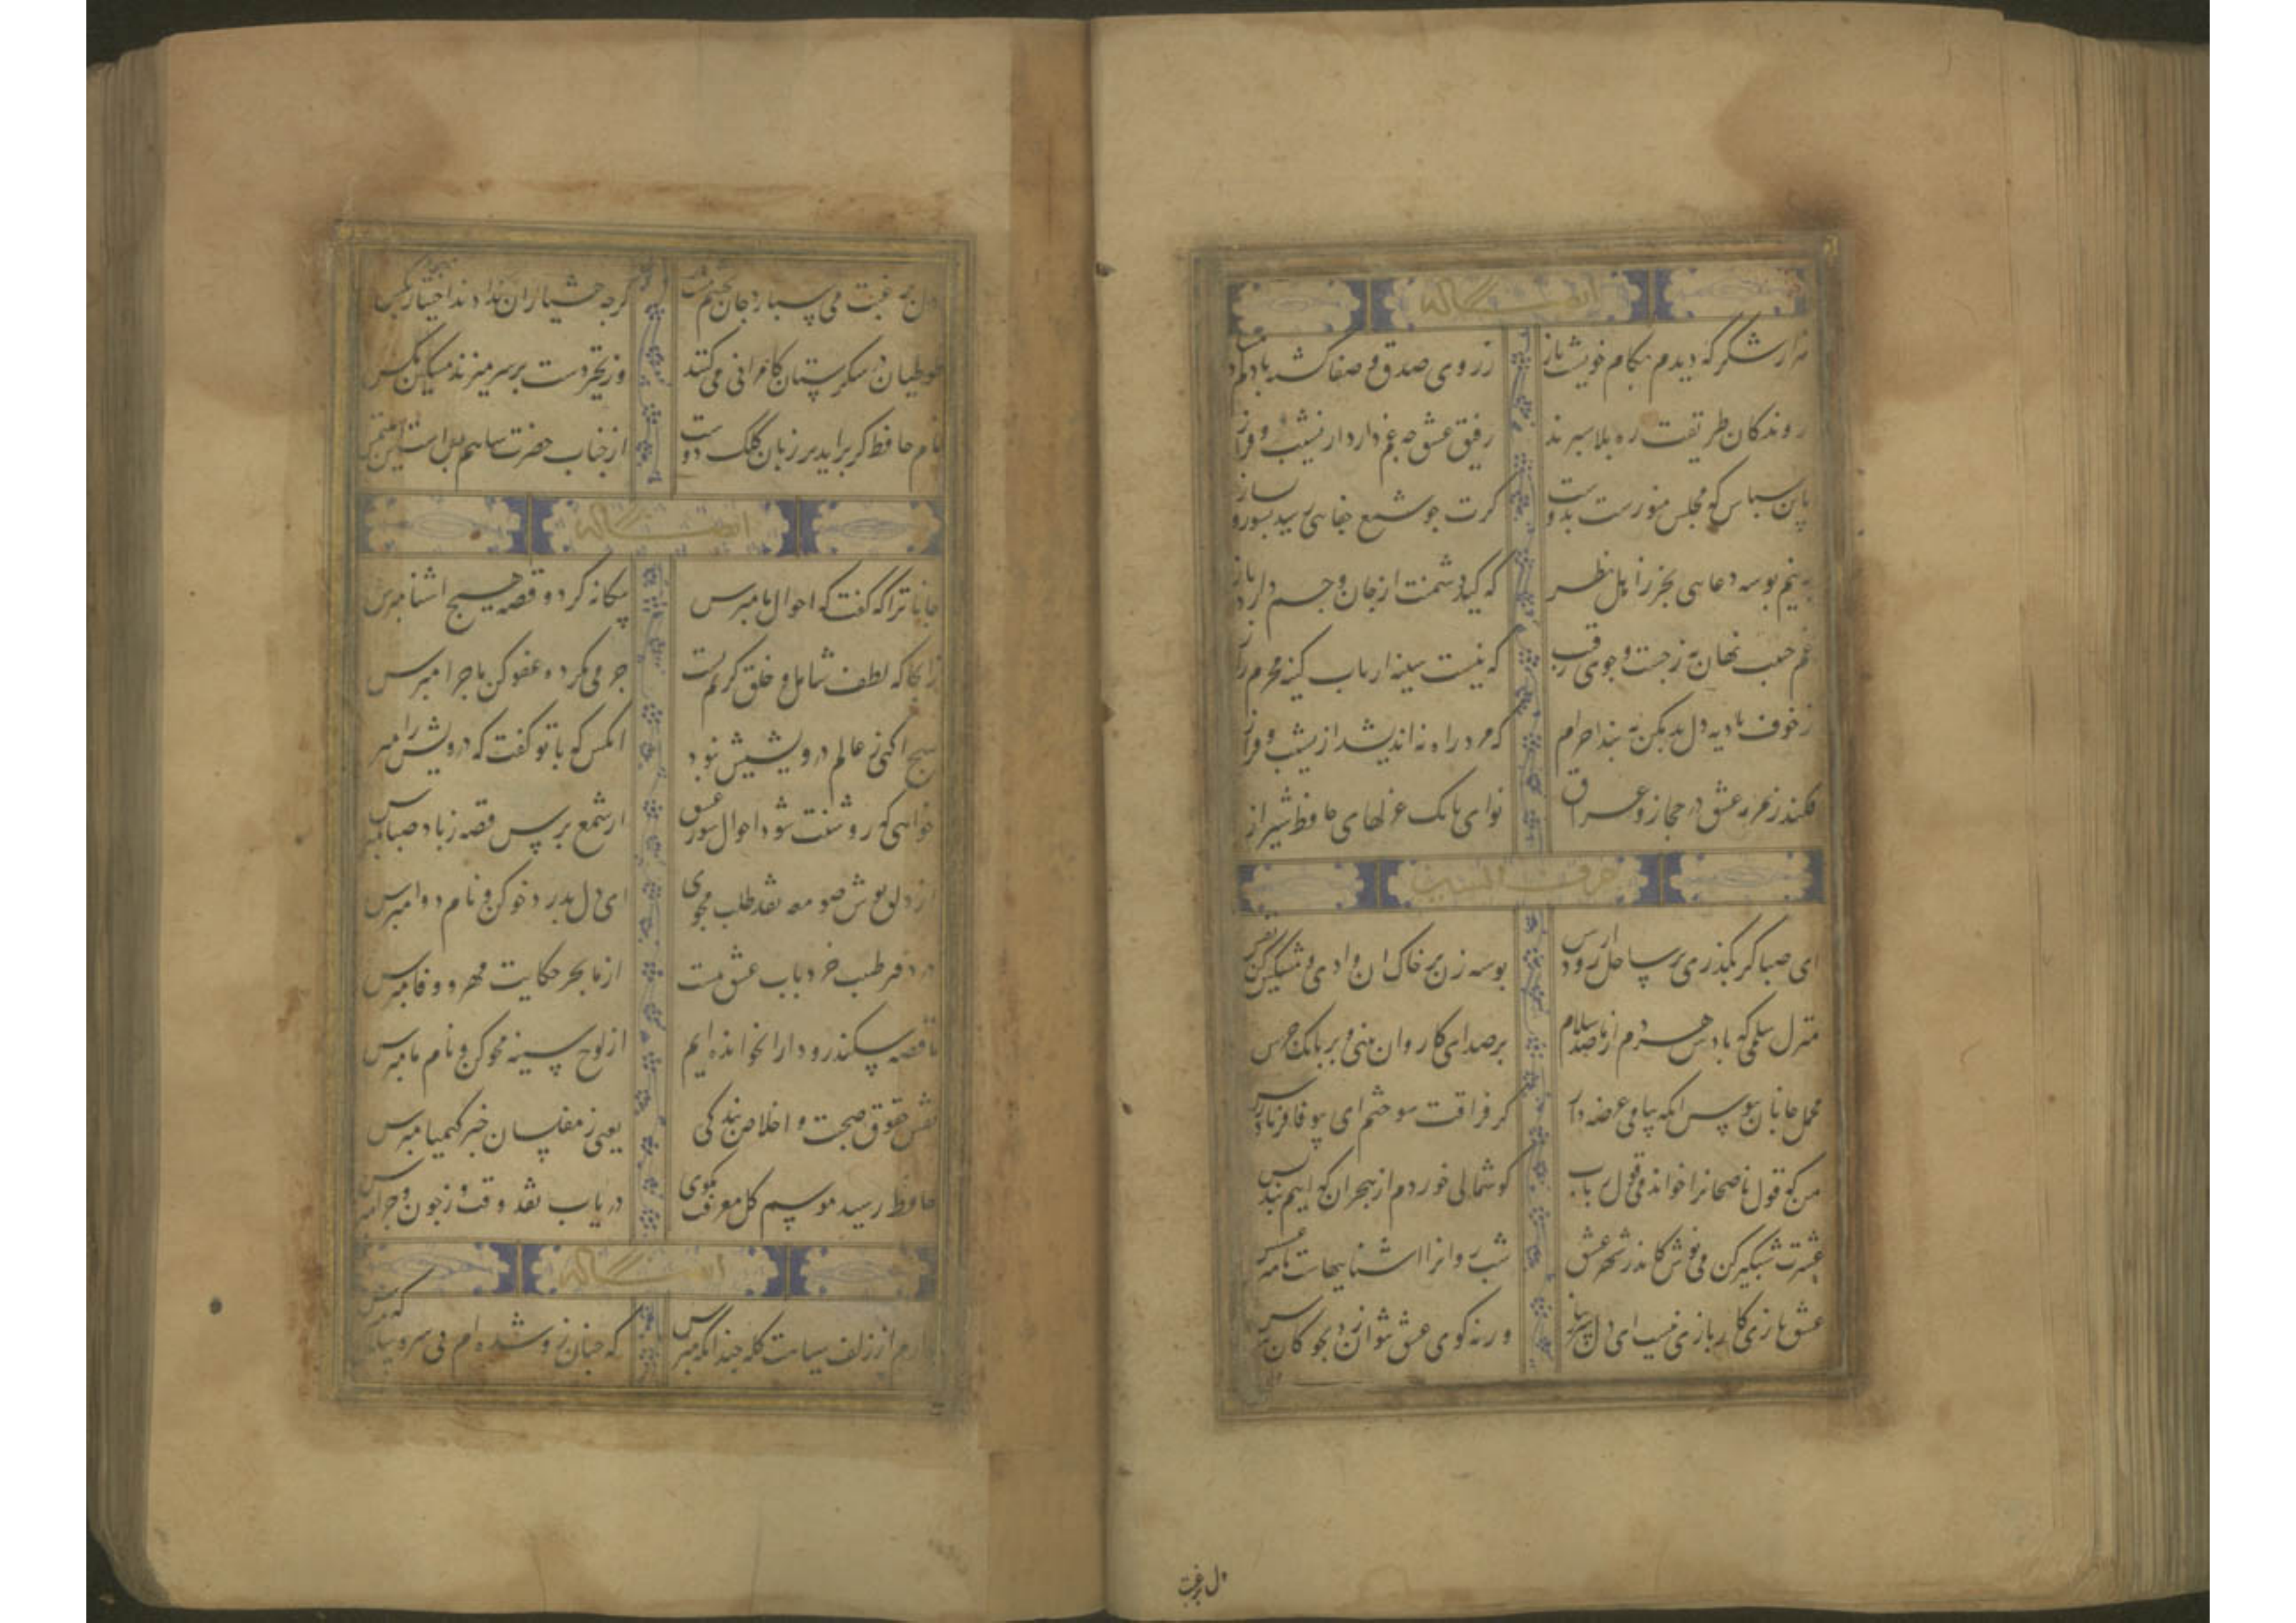 ایضاً له
هزار شکر که دیدم بکام خویشت باز
ز روی صدق و صفا گشته با دلم
روندکان طریقت ره بلا سپرند
رفیق عشق چه غم دارد از نشیب و فراز
باین سپاس که مجلس منورست بدوست
کرت چو شمع جفایی رسید بسوز و ساز
به نیم بوسه دعایی بخر ز اهل نظر
که کید دشمنت از جان و جسم دارد باز
غم حبیب نهان به ز جست و جوی رقیب
که نیست سینه ارباب کینه محرم راز
ز خوف بادیه دل بد مکن به بند احرام
که مرد راه نه اندیشد از نشیب و فراز
فکند زمزمه عشق در حجاز و عراق
نوای بانک غزلهای حافظ شیراز
حرف السین
ای صبا کر بکذری بر ساحل رود ارس
بوسه زن بر خاک ان وادی و مشکین کن نفس
منزل سلمی که بادش هر دم از ما صد سلام
بر صدای کاروان بینی و بر بانک جرس
محمل جانان ببوس انکه بپای عرضه دار
کز فراقت سوختم ای بیوفا فریاد رس
من که قول ناصحانرا خواندمی قول رباب
کوشمالی خوردم از هجران که اینم پند بس
عشرت شبکیر کن می نوش کاندر شهر عشق
شب روانرا اشناییهاست با میر عسس
عشق بازی کار بازی نیست ای دل سر بباز
ورنه کوی عشق نتوان زد بچوکان هوس
دل برغبت
دل برغبت می سپارد جان بچشم مست
کرچه هشیاران ندادند اختیار بکس
طوطیان در شکرستان کامرانی می کنند
وز تحسر دست بر سر میزند مسکین مکس
نام حافظ کر براید بر زبان کلک دوست
از جناب حضرت شاهم بس است این ملتمس
ایضاً له
جانا ترا که گفت که احوال ما مپرس
بیکانه کرد و قصه هیچ اشنا مپرس
زانجا که لطف شامل و خلق کریم تست
جرمی نکرده عفو کن ماجرا مپرس
هیچ اکهی ز عالم درویشیش نبود
انکس که با تو گفت که درویش را مپرس
خواهی که روشنت شود احوال سوز عشق
از شمع پرس قصه ز باد صبا مپرس
از دلق پوش صومعه نقد طلب مجوی
ای دل بدرد خو کن و نام دوا مپرس
در دفتر طبیب خرد باب عشق نیست
از ما بجز حکایت مهر و وفا مپرس
ما قصه سکندر و دارا نخوانده ایم
از لوح سینه محو کن و نام ما مپرس
نقش حقوق صحبت و اخلاص بندکی
یعنی ز مفلسان خبر کیمیا مپرس
حافظ رسید موسم کل معرفت مکوی
دریاب نقد وقت و ز چون و چرا مپرس
ایضاً له
دارم از زلف سیاهت کله چندانکه مپرس
که چنان زو شده ام بی سر و سامان که مپرس